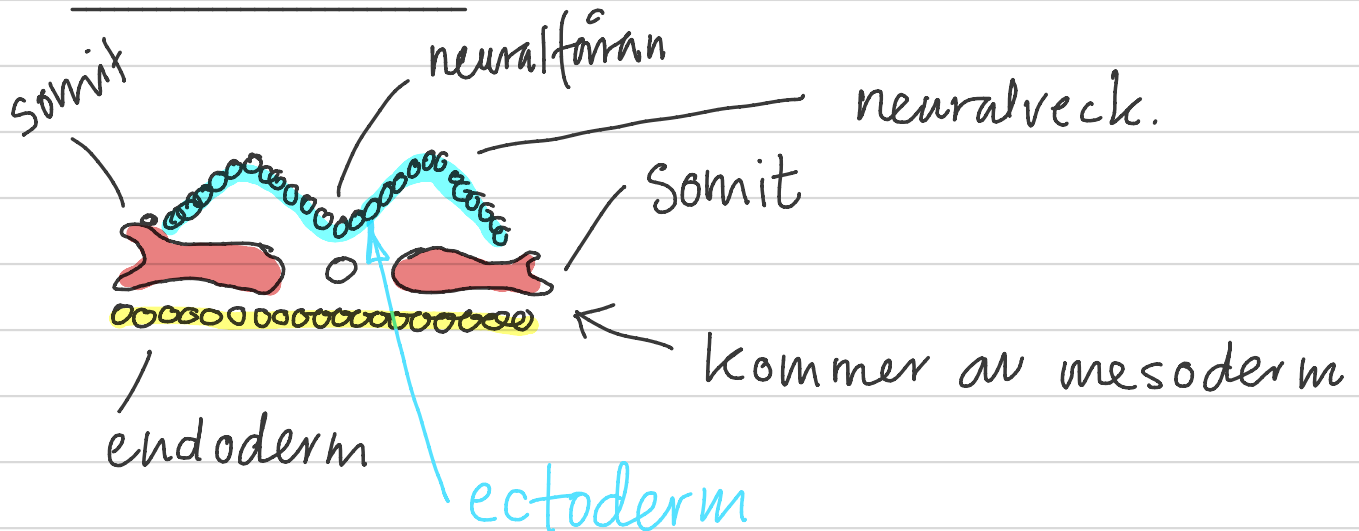 somit
neuralfåran
neuralveck.
somit
kommer av mesoderm
endoderm
ectoderm